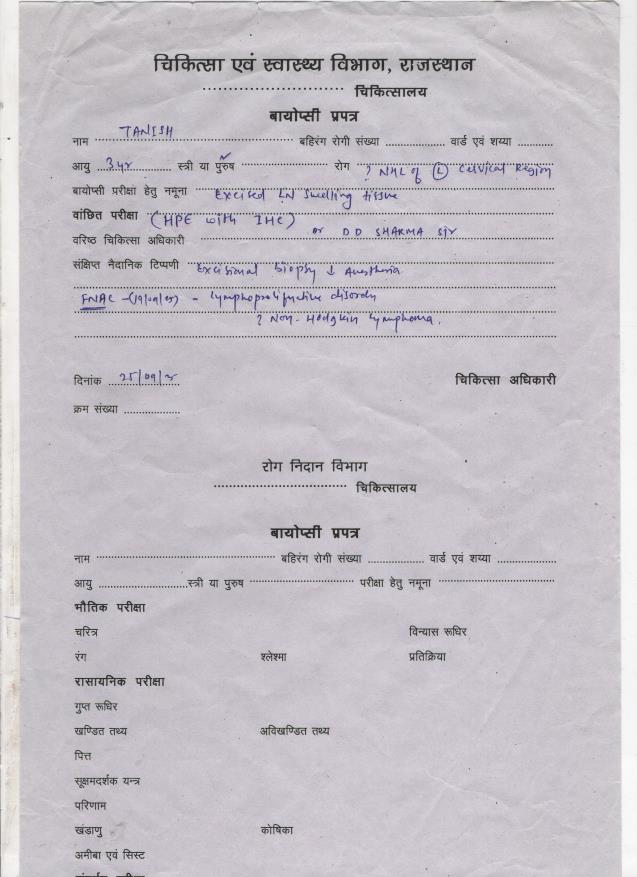 चिकित्सा एवं स्वास्थ्य विभाग, राजस्थान
चिकित्सालय
बायोप्सी प्रपत्र
नाम TANISH बहिरंग रोगी संख्या वार्ड एवं शय्या
आयु 3 yr स्त्री या पुरुष ✓ रोग ? NHL of (L) Cervical Region
बायोप्सी परीक्षा हेतु नमूना Excised LN Swelling tissue
वांछित परीक्षा (HPE with IHC)
वरिष्ठ चिकित्सा अधिकारी Dr D D SHARMA Sir
संक्षिप्त नैदानिक टिप्पणी Excisional biopsy ↓ Anesthesia
FNAC - - Lymphoproliferative disorder
? Non-Hodgkin Lymphoma.
दिनांक 25/09/ चिकित्सा अधिकारी
क्रम संख्या
रोग निदान विभाग
चिकित्सालय
बायोप्सी प्रपत्र
नाम बहिरंग रोगी संख्या वार्ड एवं शय्या
आयु स्त्री या पुरुष परीक्षा हेतु नमूना
भौतिक परीक्षा
चरित्र विन्यास रूधिर
रंग श्लेश्मा प्रतिक्रिया
रासायनिक परीक्षा
गुप्त रूधिर
खण्डित तथ्य अविखण्डित तथ्य
पित्त
सूक्ष्मदर्शक यन्त्र
परिणाम
खंडाणु कोषिका
अमीबा एवं सिस्ट